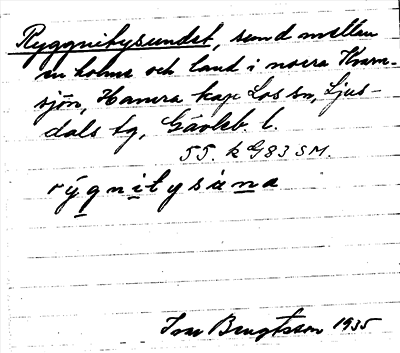 Ryggnitysundet, sund mellan
en holme och land i norra Kvarn-
sjön, Hamra kap. Los sn, Ljus-
dals tg, Gävleb. l.
55. k G83 SM.
rýgnitysuna
Ivar Bengtsson 1935